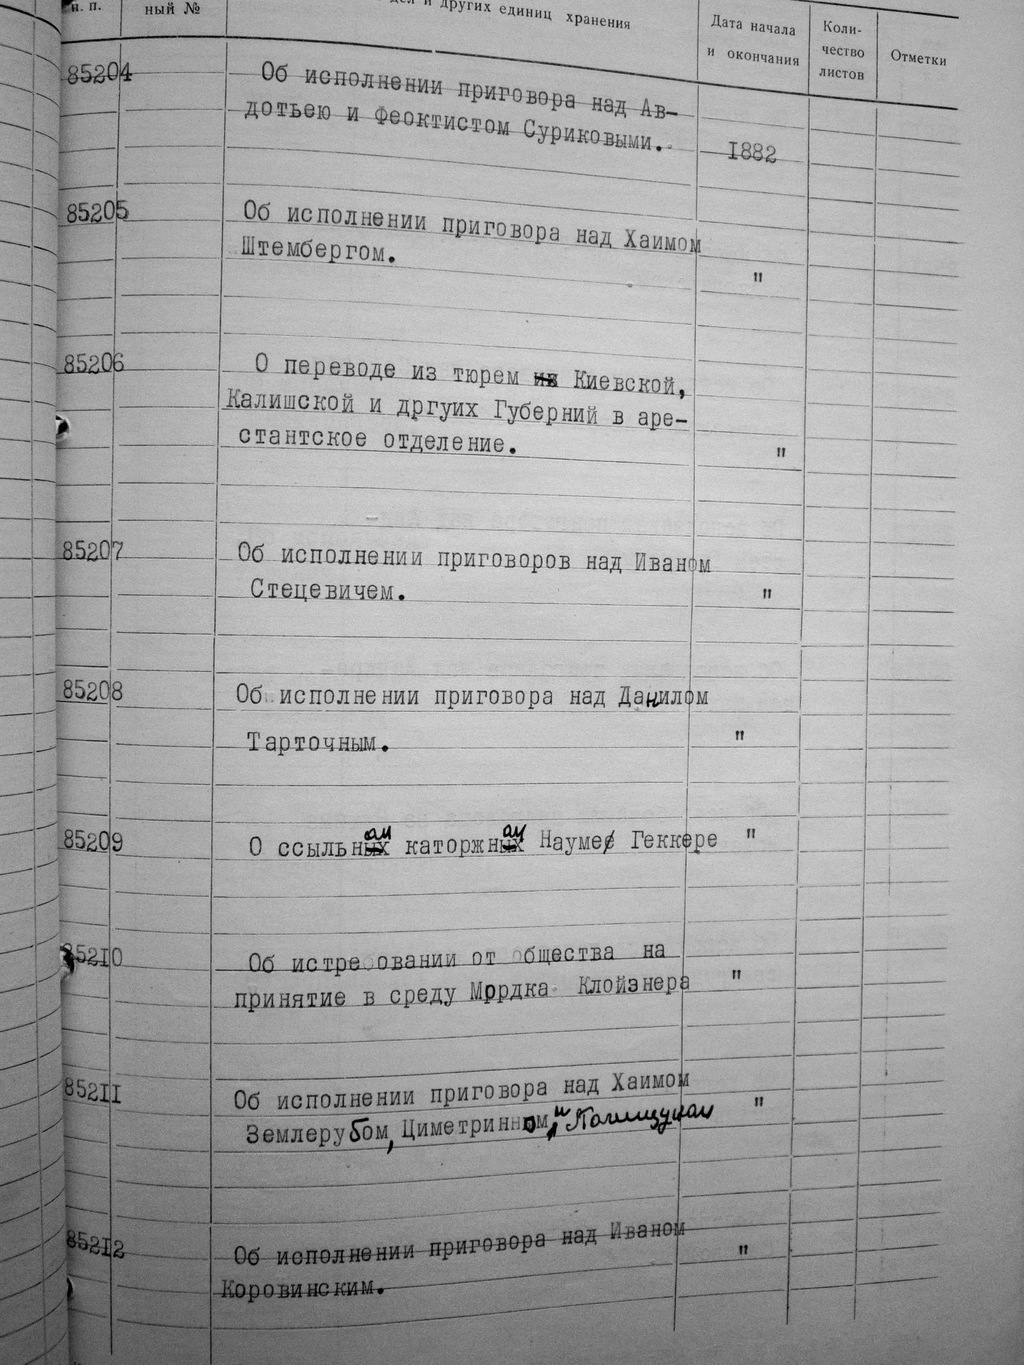 п. п.
ный №
дел и других единиц хранения
Дата начала
и окончания
Коли-
чество
листов
Отметки
85204
Об исполнении приговора над Ав-
дотьею и Феоктистом Суриковыми.
1882
85205
Об исполнении приговора над Хаимом
Штембергом.
"
85206
О переводе из тюрем Киевской,
Калишской и дргуих Губерний в аре-
стантское отделение.
"
85207
Об исполнении приговоров над Иваном
Стецевичем.
"
85208
Об исполнении приговора над Данилом
Тарточным.
"
85209
О ссыльных каторжных Науме Геккере "
85210
Об истребовании от общества на
принятие в среду Мордка Клойзнера "
85211
Об исполнении приговора над Хаимом
Землерубом, Циметринном, и "
85212
Об исполнении приговора над Иваном
Коровинским.
"